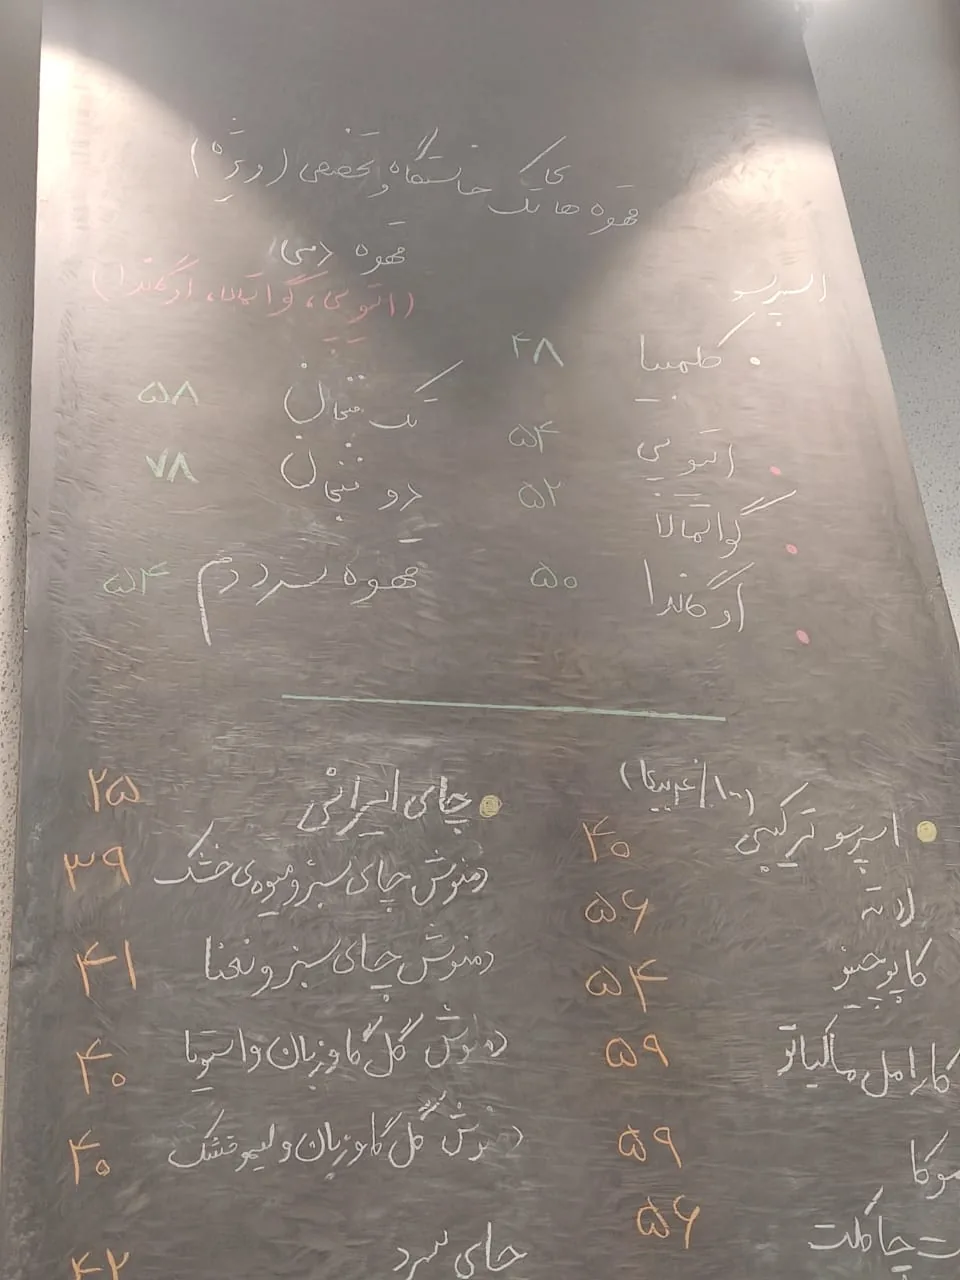 قهوه های تک خاستگاه و تخصصی (ویژه)
اسپرسو
• کلمبیا ۴۸
• اتیوپی ۵۴
• گواتمالا ۵۲
• اوگاندا ۵۰
قهوه دمی
(اتیوپی، گواتمالا، اوگاندا)
تک فنجان ۵۸
دو فنجان ۷۸
قهوه سرد دم ۵۴
• اسپرسو ترکیبی (۱۰۰٪ عربیکا) ۴۰
لاته ۵۶
کاپوچینو ۵۴
کارامل ماکیاتو ۵۹
موکا ۵۹
ت چاکلت ۵۶
• چای ایرانی ۲۵
دمنوش چای سبز و میوه ی خشک ۳۹
دمنوش چای سبز و نعنا ۴۱
دمنوش گل گاوزبان و استویا ۴۰
دمنوش گل گاوزبان و لیمو خشک ۴۰
چای سرد ۴۲